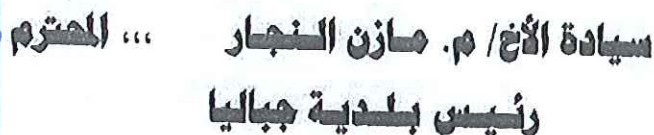 سيادة الأخ/ م. مازن النجار ... المحترم
رئيس بلدية جباليا